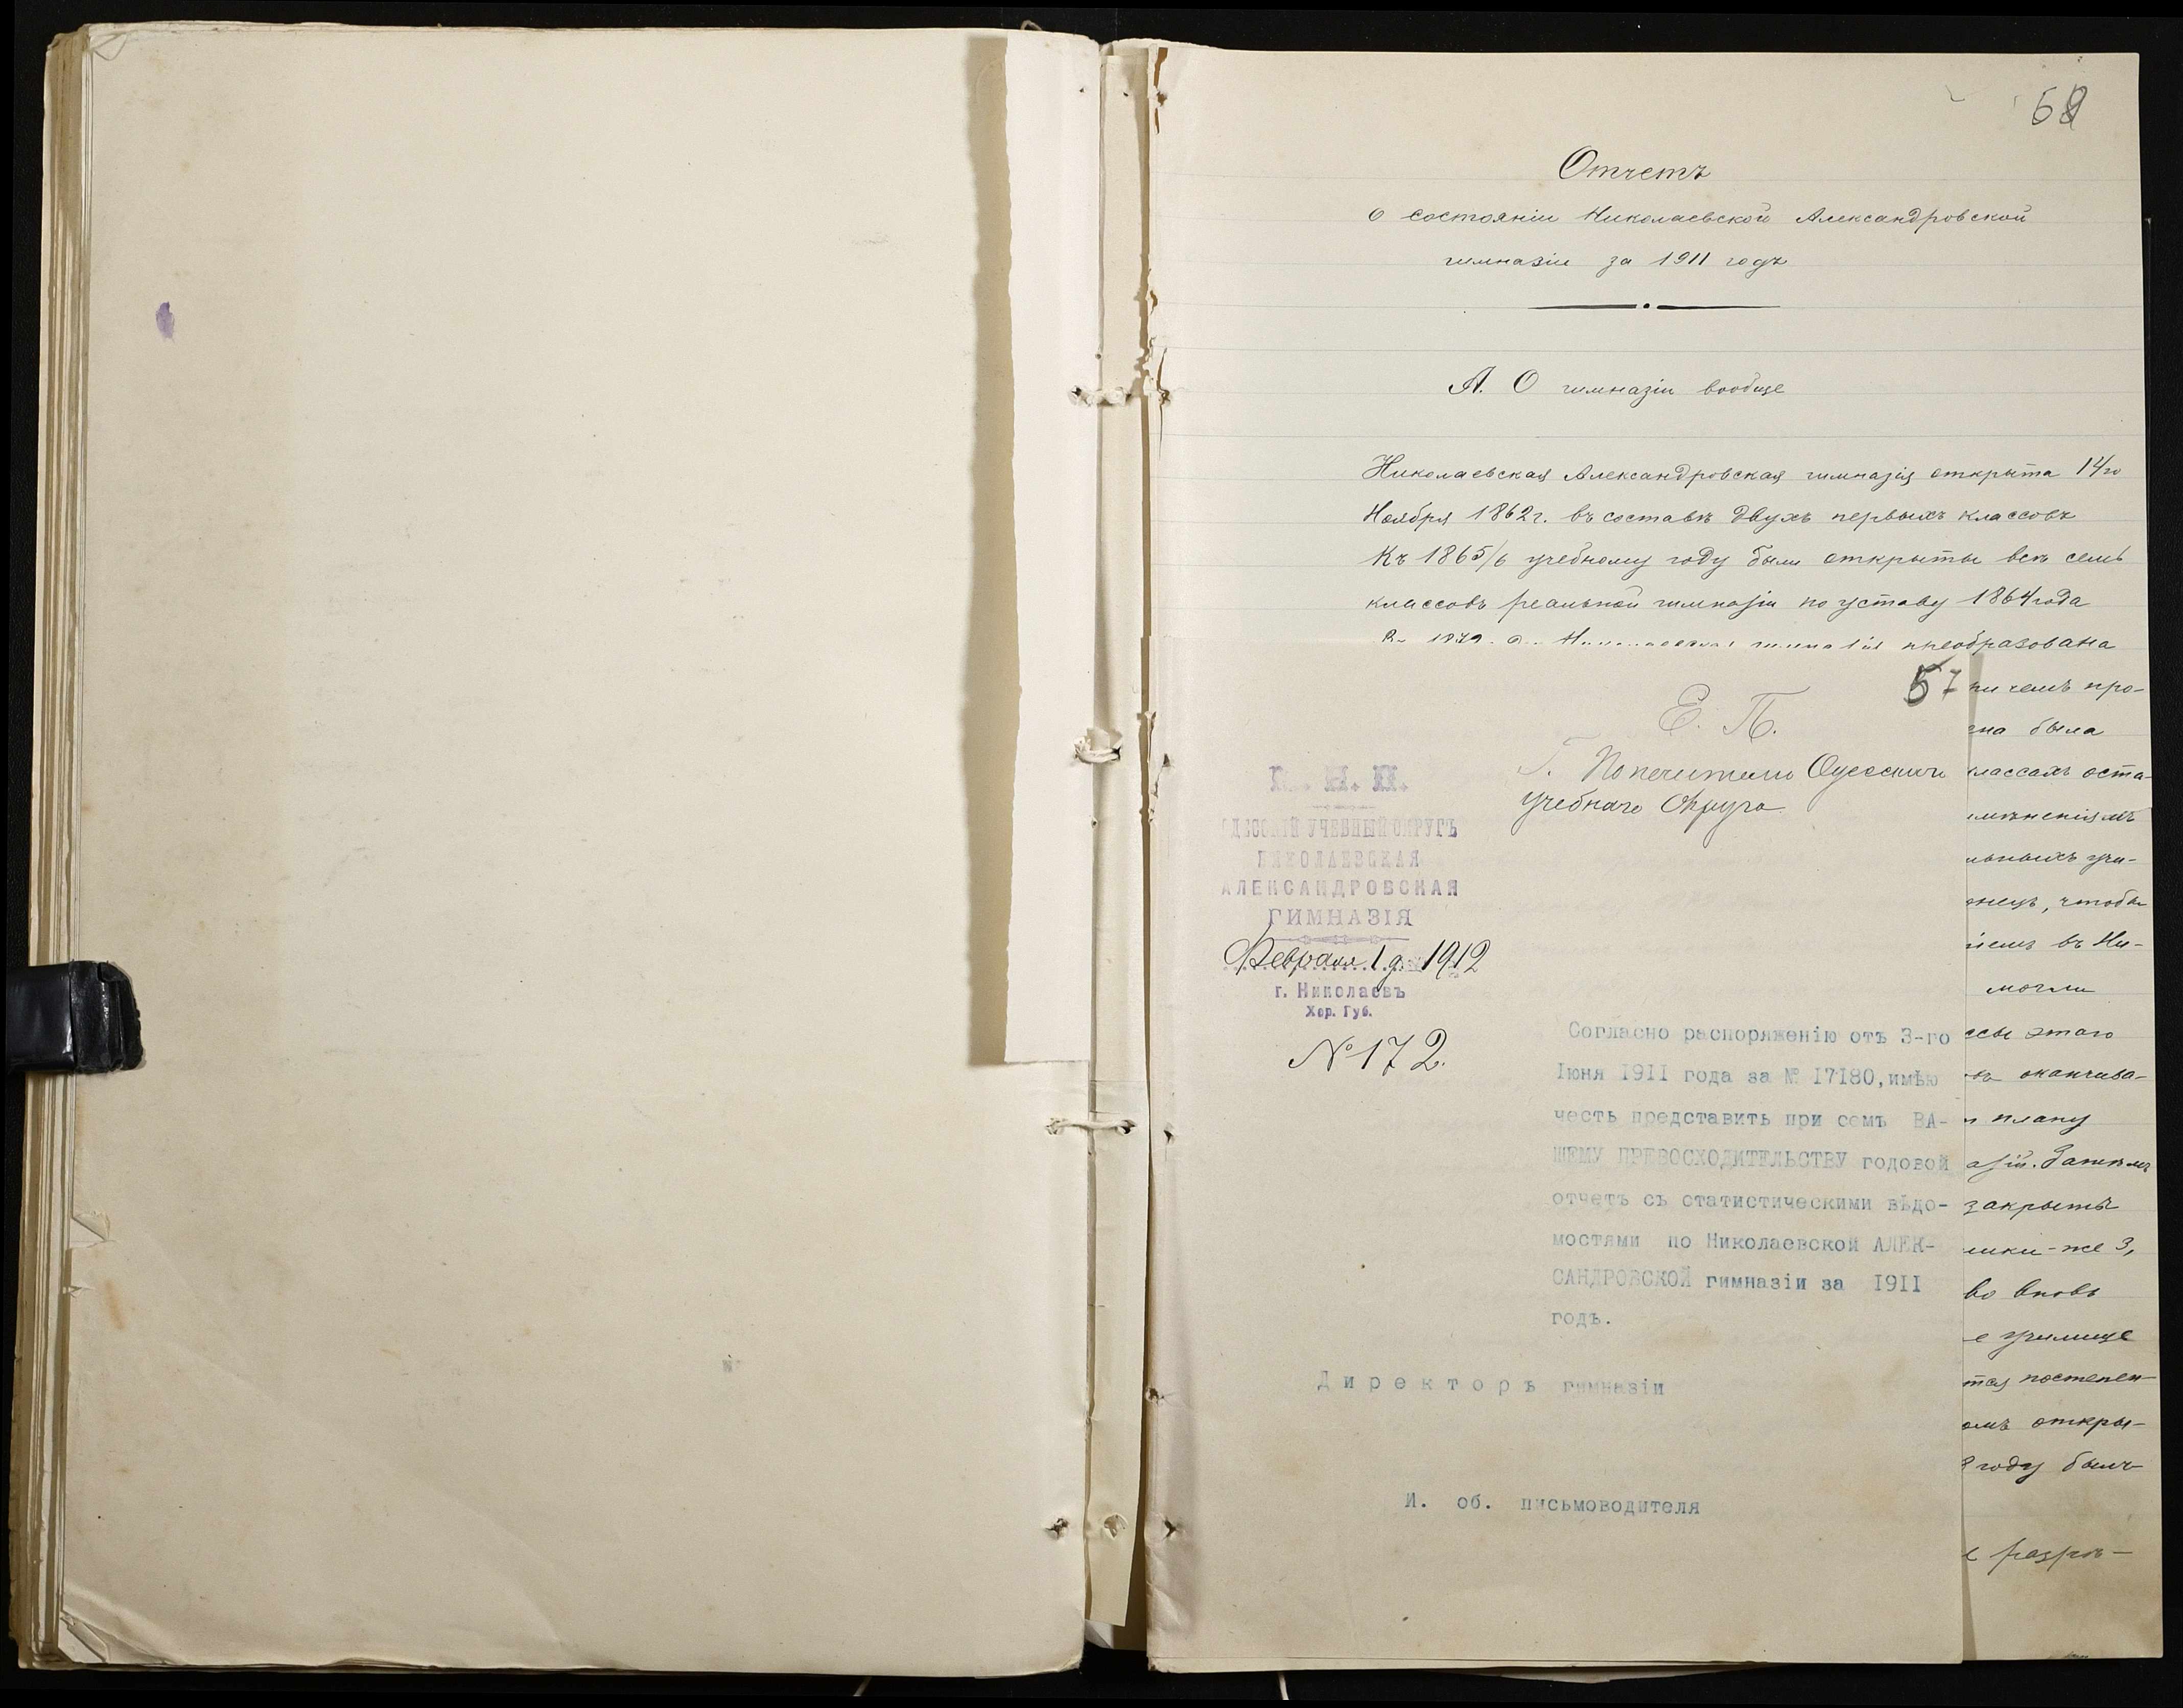 58
Отчетъ
о состояніи Николаевской Александровской
гимназіи за 1911 годъ
А. О гимназіи вообще
Николаевская Александровская гимназія открыта 14го
Ноября 1862 г. въ составѣ двухъ первыхъ классовъ
Къ 1865/6 учебному году были открыты всѣ семь
классовъ реальной гимназіи по уставу 1864 года
преобразована
57
Е. П.
Г. Попечителю Одесскаго
Учебнаго Округа
М. Н. П.
ОДЕССКІЙ УЧЕБНЫЙ ОКРУГЪ
НИКОЛАЕВСКАЯ
АЛЕКСАНДРОВСКАЯ
ГИМНАЗІЯ
Февраля 1 д. 1912
г. Николаевъ
Хер. Губ.
№ 172.
Согласно распоряженію отъ 3-го
Іюня 1911 года за № 17180, имѣю
честь представить при семъ ВА-
ШЕМУ ПРЕВОСХОДИТЕЛЬСТВУ годовой
отчетъ съ статистическими вѣдо-
мостями по Николаевской АЛЕК-
САНДРОВСКОЙ гимназіи за 1911
годъ.
Директоръ гимназіи
И. об. письмоводителя
ни чемъ про-
ена была
классахъ оста-
имѣненіямъ
льныхъ учи-
онецъ, чтобы
іемъ въ Ни-
могли
ссы этого
въ оканчива-
и плану
азій. Затѣмъ
закрыты
ники-же 3,
во вновь
е училище
тся постепен-
омъ откры-
году былъ
е разрѣ-